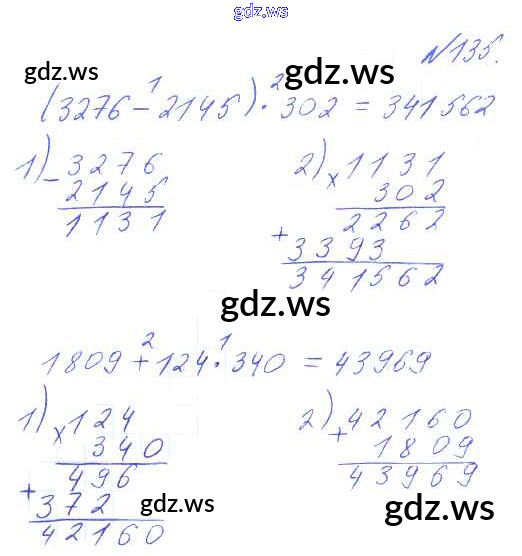 gdz.ws
№135.
gdz.ws gdz.ws
1 2
(3276-2145)·302=341562
1) - 3276 2) x 1131
2145 302
1131 2262
+ 3393
341562
gdz.ws
2 1
1809+124·340=43969
1) x 124 2) + 42160
340 1809
496 43969
+ 372 gdz.ws gdz.ws
42160